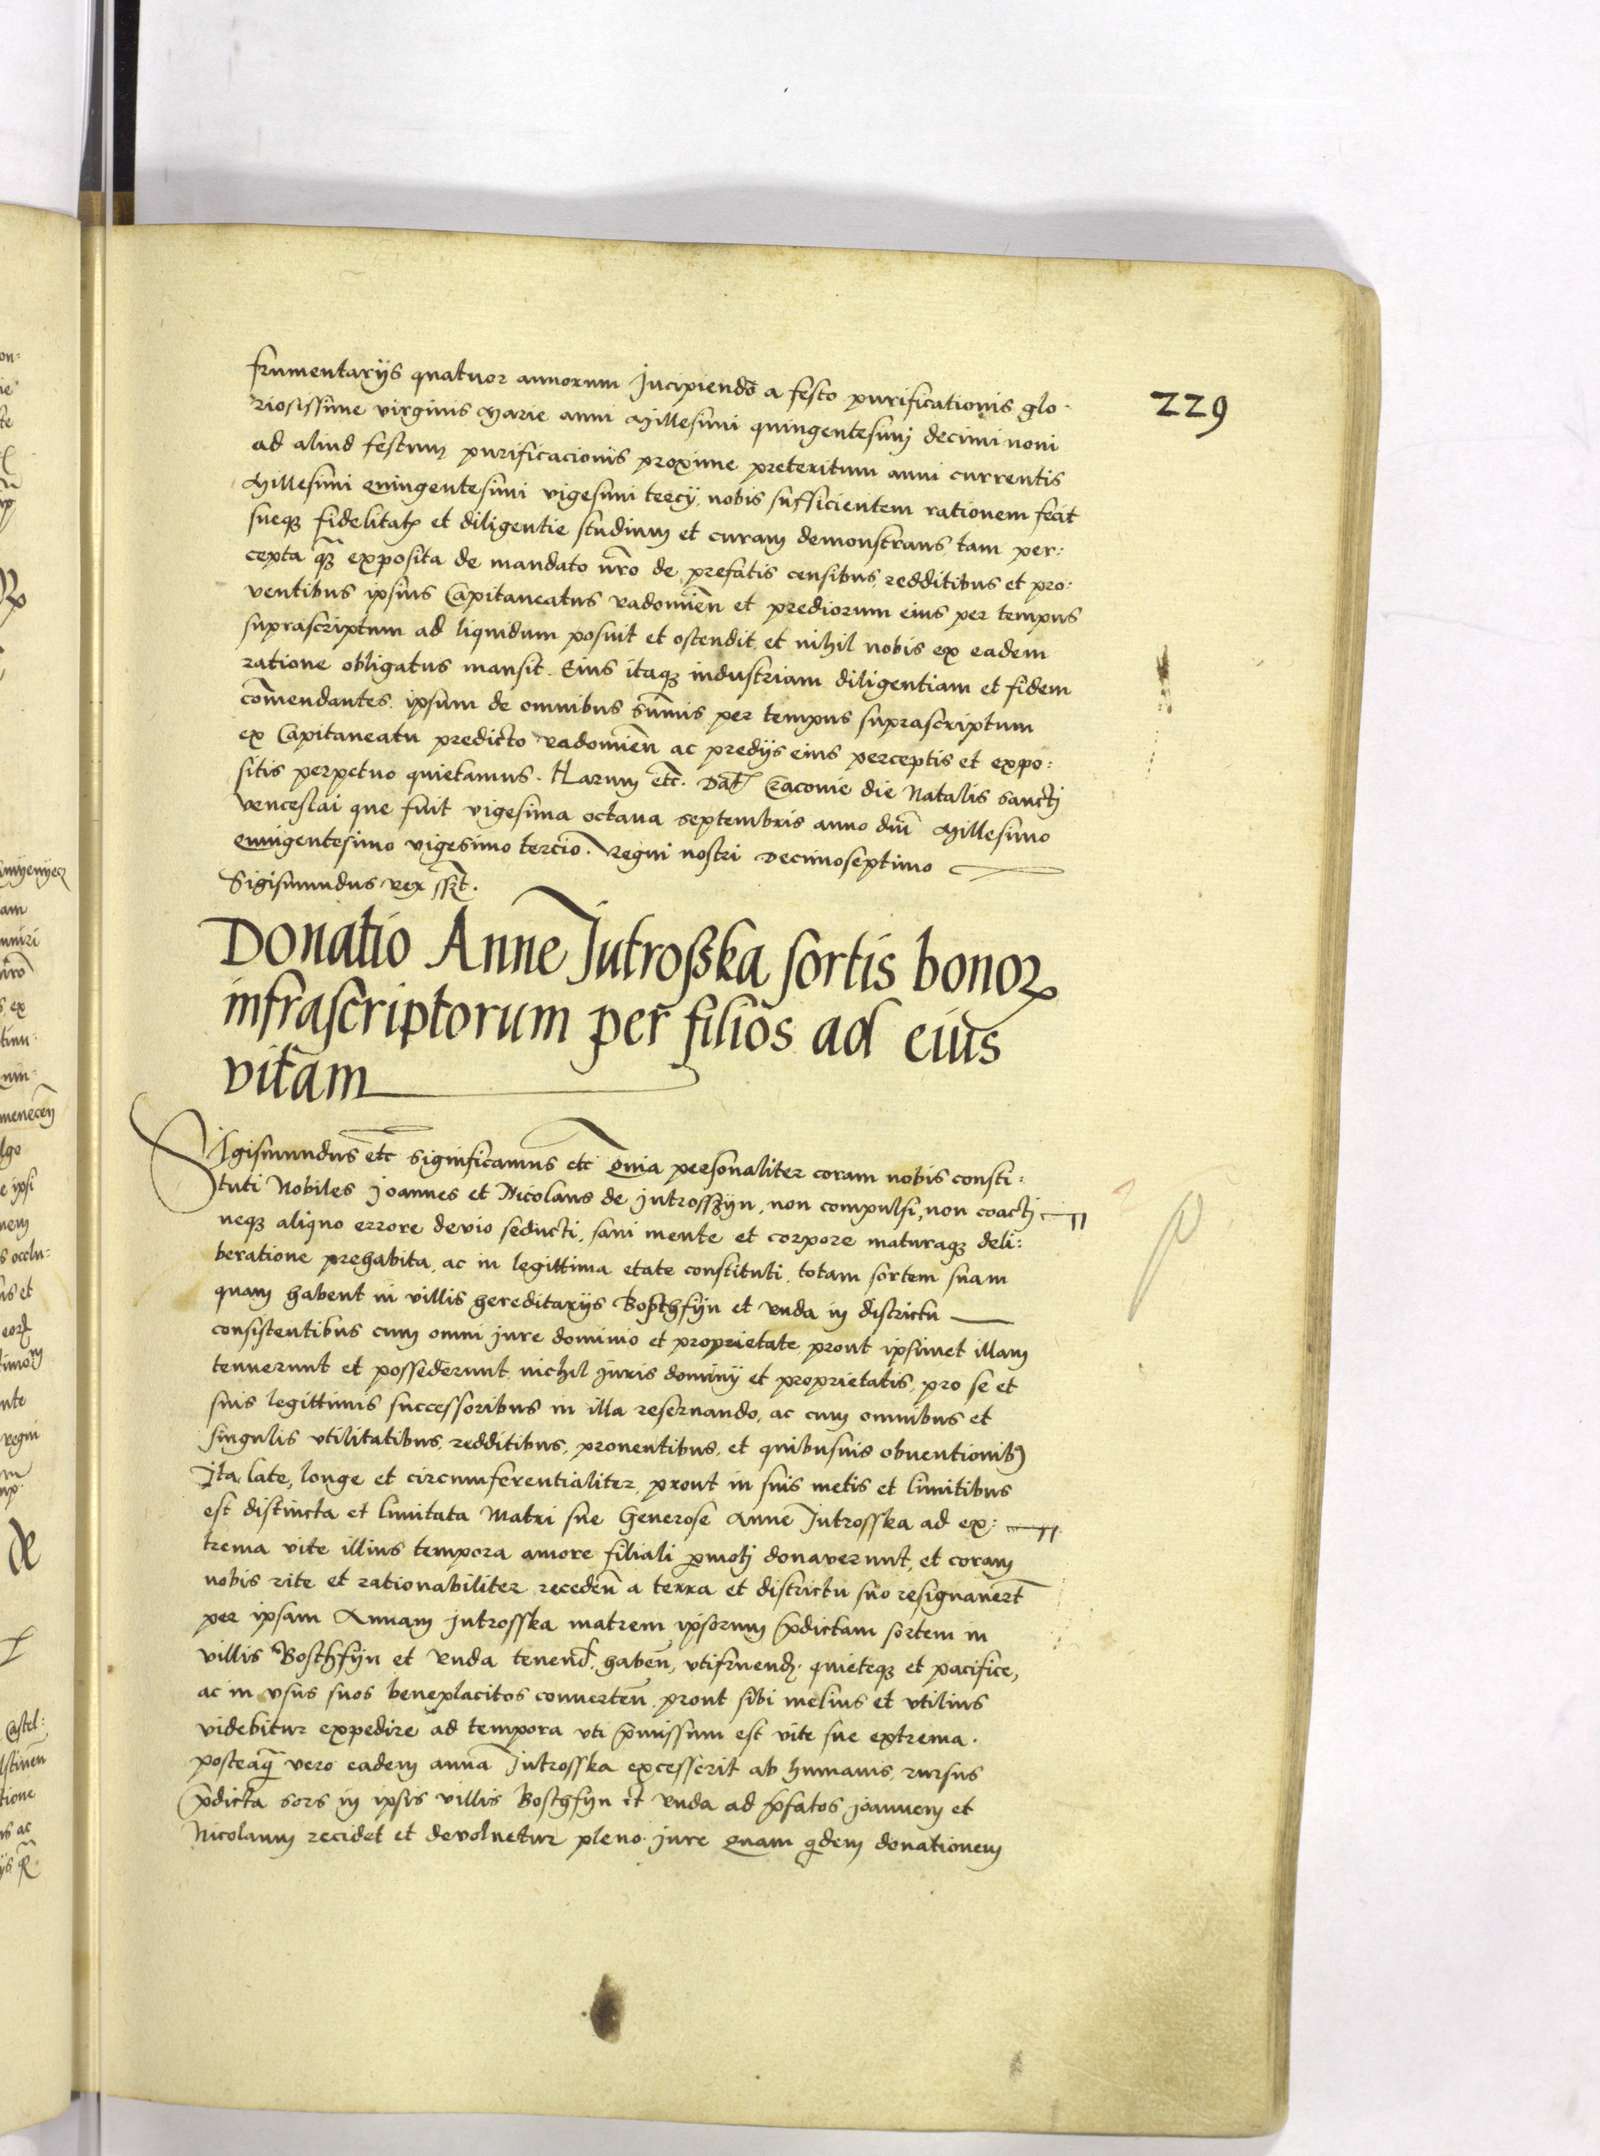 229
frumentarijs quatuor annorum Incipiendo a festo purificationis glo-
riosissime virginis Marie anni Millesimi quingentesimi decimi noni
ad aliud festum purificacionis proxime preteritum anni currentis
Millesimi quingentesimi vigesimi tercij, nobis sufficientem rationem fecit
sueq₃ fidelitatꝭ et diligentie studium et curam demonstrans tam per:
cepta q̃ exposita de mandato nr̃o de prefatis censibus redditibus et pro:
ventibus ipsius Capitaneatus Radomien̄ et prediorum eius per tempus
suprascriptum ad liquidum posuit et ostendit, et nihil nobis ex eadem
ratione obligatus mansit. Eius itaq₃ industriam diligentiam et fidem
com̄endantes, ipsum de omnibus sum̄is per tempus suprascriptum
ex Capitaneatu predicto Radomien̄ ac predijs eius perceptis et expo:
sitis perpetuo quietamus. Harum etc̄. Dat̄ Cracouie die Natalis sancti
Venceslai que fuit vigesima octaua septembris anno dn̄i Millesimo
quingentesimo vigesimo tercio. Regni nostri Decimoseptimo
Sigismundus Rex sszt.
Donatio Anne Jutrosska sortis bonoꝝ
infrascriptorum per filios ad eius
vitam
Sigismundus etc̄ significamus etc̄ Quia personaliter coram nobis consti:
tuti Nobiles Joannes et Nicolaus de Jutrosszyn, non compulsi, non coacti
neq₃ aliquo errore devio seducti, sani mente et corpore maturaq₃ deli:
beratione prehabita, ac in legittima etate constituti, totam sortem suam
quam habent in villis hereditarijs Bosthfyn et Unda in districtu
consistentibus cum omni jure dominio et proprietate prout ipsimet illam
tenuerunt et possederunt, nichil Juris dominij et proprietatis, pro se et
suis legittimis successoribus in illa reseruando, ac cum omnibus et
singulis vtilitatibus, redditibus, prouentibus, et quibusuis obuentionibꝰ
Ita late, longe et circumferentialiter, prout in suis metis et limitibus
est distincta et limitata Matri sue Generose Anne Jutrosska ad ex:
trema vite illius tempora amore filiali p̱moti donaverunt, et coram
nobis rite et rationabiliter receden̄ a terra et districtu suo resignauert̄
per ipsam Annam Jutrosska matrem ipsorum p̄dictam sortem in
villis Bosthfyn et Unda tenend̄, haben̄, vtifruend̄, quieteq₃ et pacifice,
ac in vsus suos beneplacitos conuerten̄, prout sibi melius et vtilius
videbitur expedire ad tempora vti p̄missum est vite sue extrema.
posteaq̃ vero eadem anna Jutrosska excesserit ab humanis, rursus
p̄dicta sors in ipsis villis Bosthfyn et Unda ad p̄fatos Joannem et
Nicolaum recidet et devoluetur pleno jure Quam q̇dem donationem